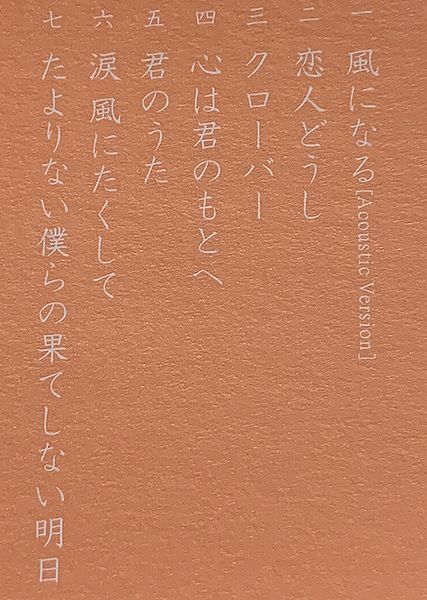 一 風になる[Acoustic Version]
二 恋人どうし
三 クローバー
四 心は君のもとへ
五 君のうた
六 涙 風にたくして
七 たよりない僕らの果てしない明日